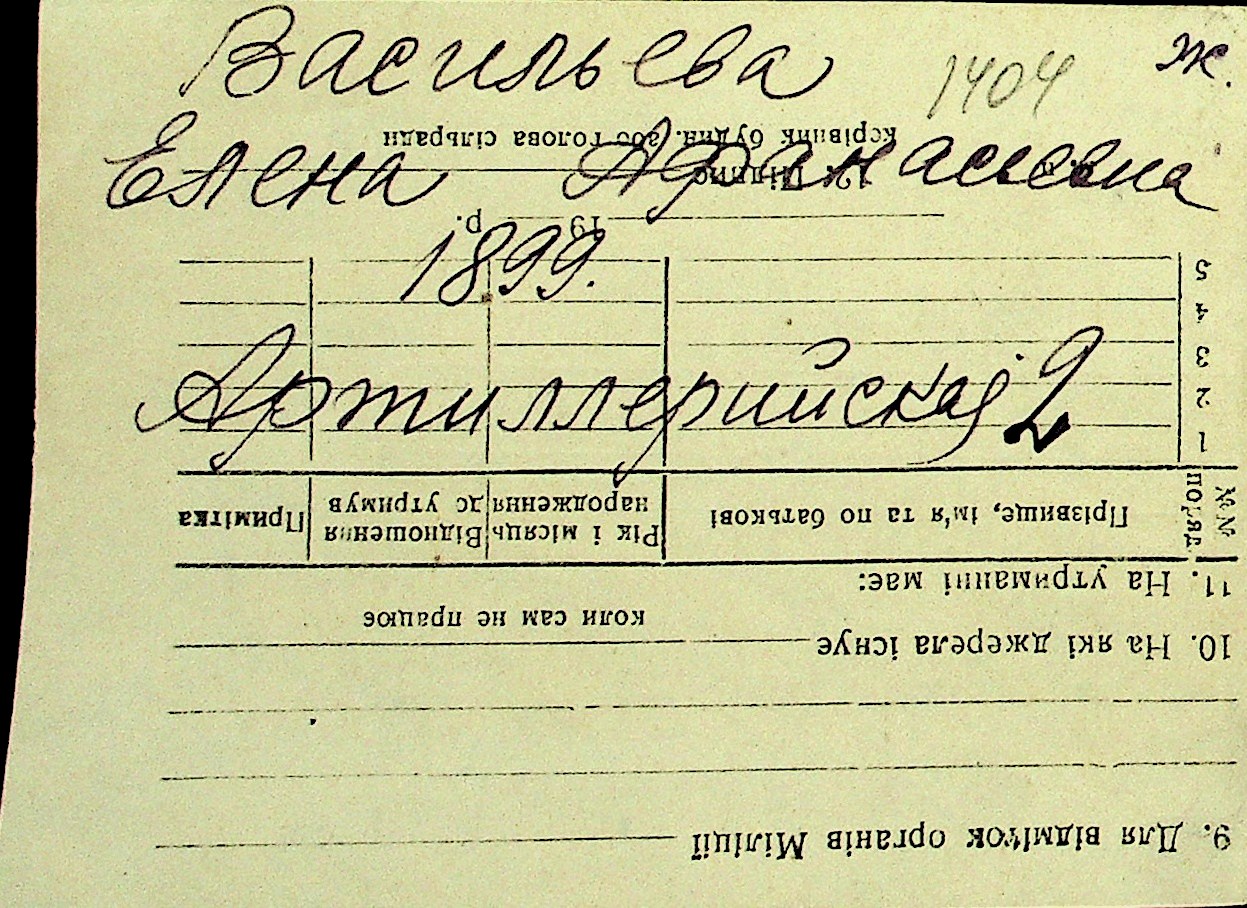 Васильева
1404
ж.
Елена Афанасьевна
1899.
Артиллерийская 2
9. Для відміток органів Міліції
10. На які джерела існує
коли сам не працює
11. На утриманні має:
№№ по ряд.
Прізвище, ім'я та по батькові
Рік і місяць народження
Відношення до утримув
Примітка
1
2
3
4
5
19 р.
12. Підпис
керівник будин. або голова сільради